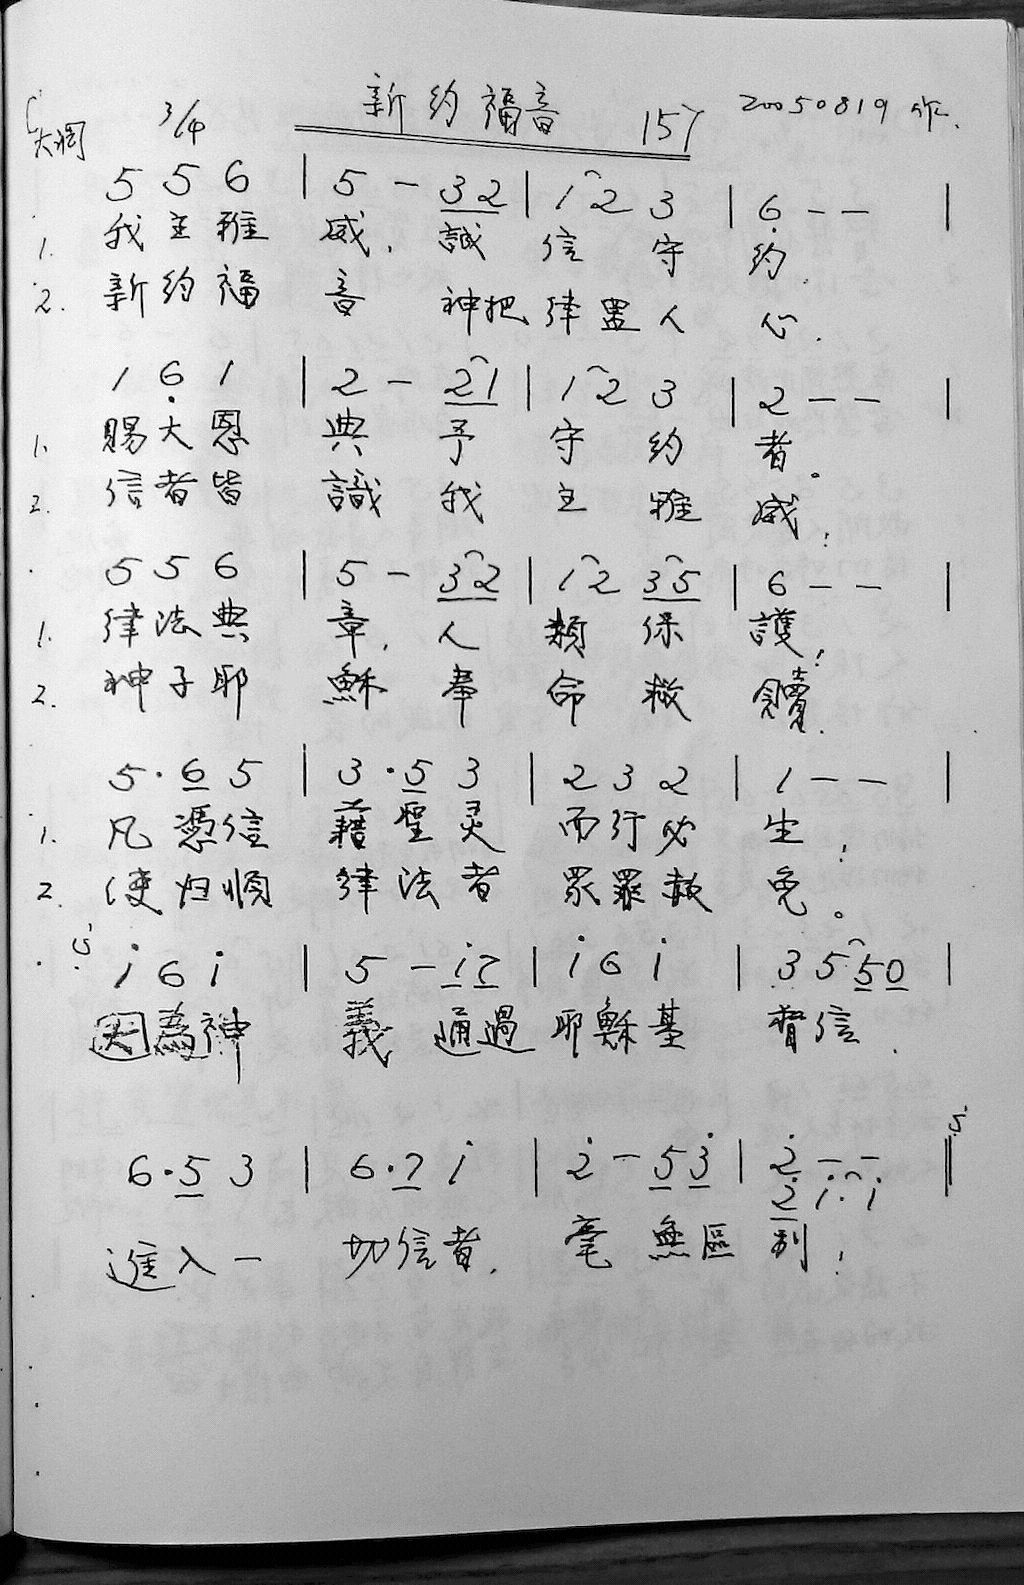 新約福音 157 20050819 作.
C 大調 3/4
5 5 6 | 5 - 3 2 | 1 2 3 | 6 - - |
1. 我主雅威, 誠信守約.
2. 新約福音 神把律置人心.
1 6 1 | 2 - 2 1 | 1 2 3 | 2 - - |
1. 賜大恩典予守約者。
2. 信者皆識我主雅威!
5 5 6 | 5 - 3 2 | 1 2 3 5 | 6 - - |
1. 律法典章, 人類保護!
2. 神子耶穌奉命救贖.
5 · 6 5 | 3 · 5 3 | 2 3 2 | 1 - - |
1. 凡憑信藉聖灵而行必生!
2. 使归順律法者眾罪赦免。
i 6 i | 5 - i 2 | i 6 i | 3 5 5 0 |
因為神義 通過耶穌基督信.
6 · 5 3 | 6 · 7 i | 2 - 5 3 | 2 - - ‖
2 i · i
進入一切信者, 毫無區別!